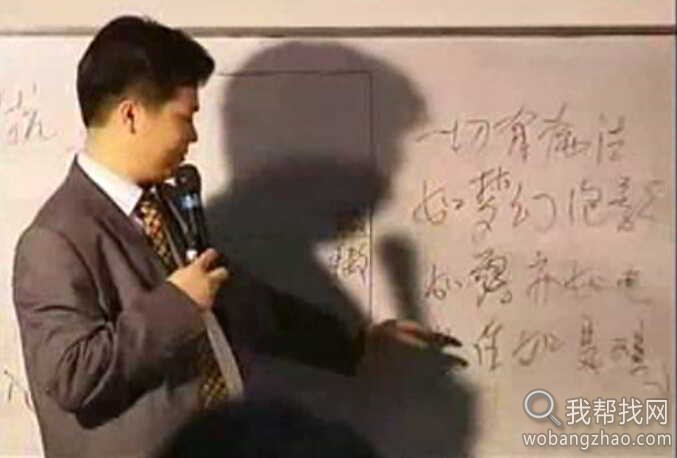 一切有為法
如梦幻泡影
如露亦如电
作如是观
我帮找网
wobangzhao.com